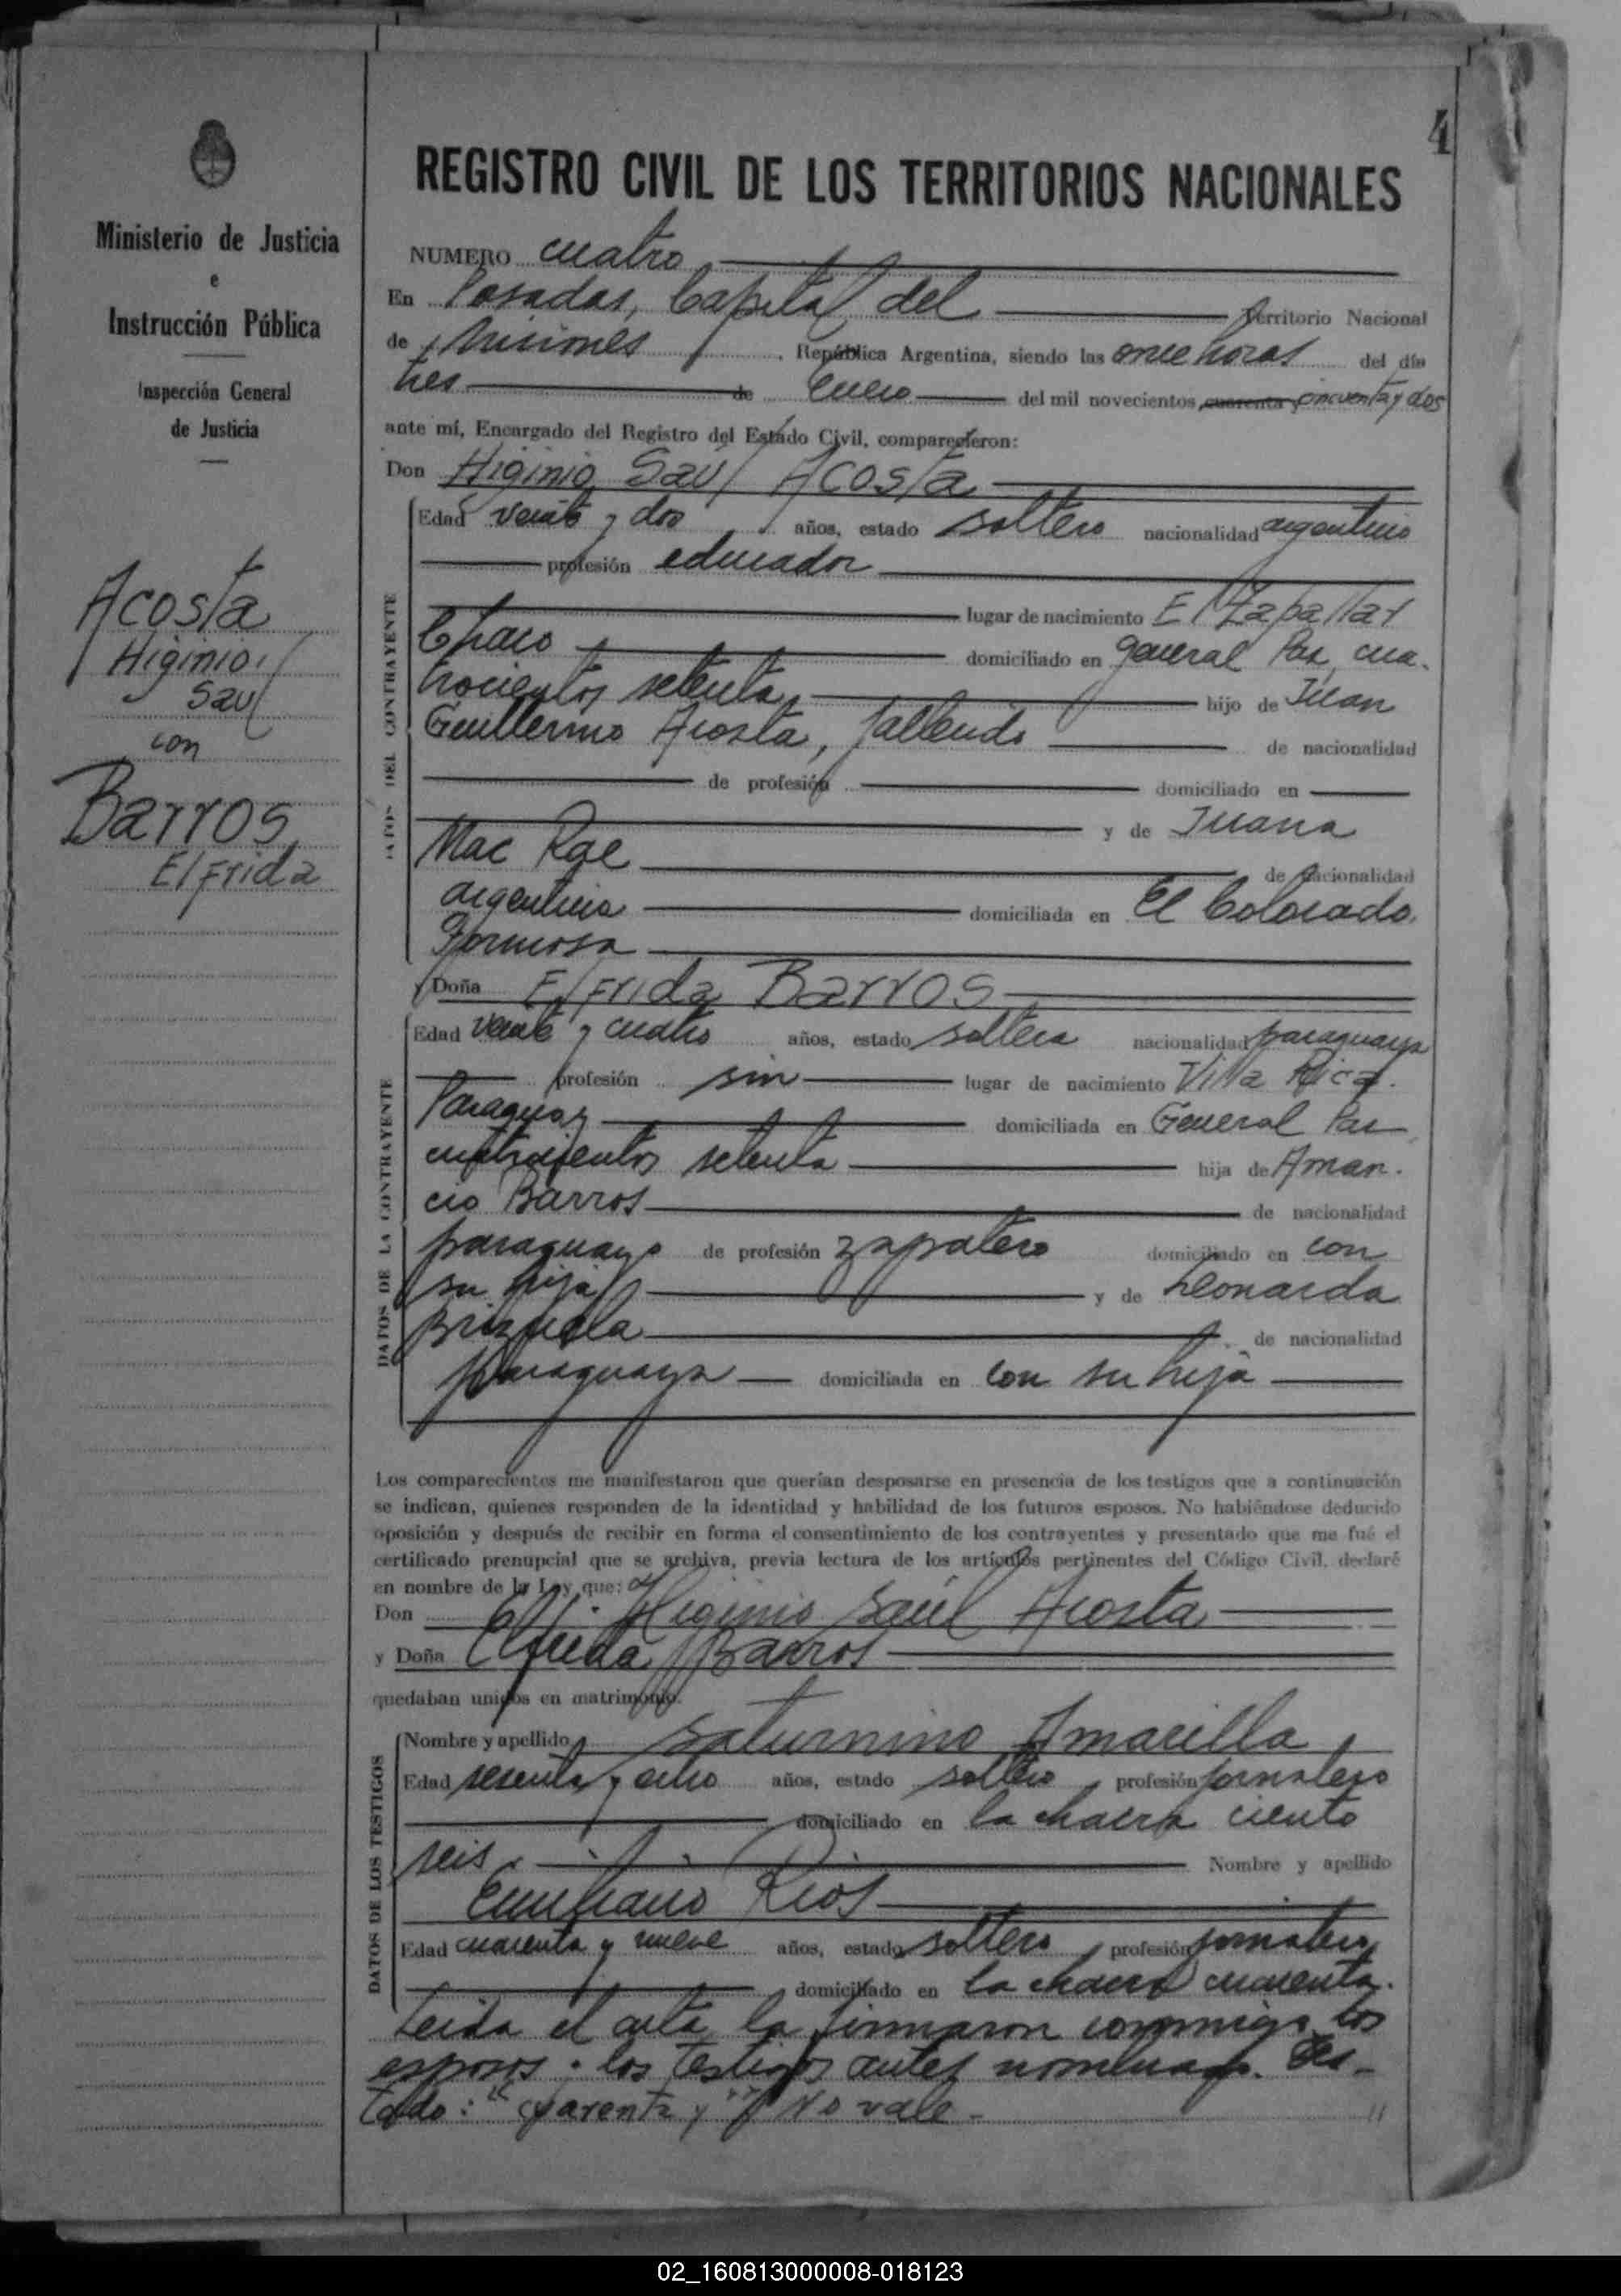 4
Ministerio de Justicia
e
Instrucción Pública
Inspección General
de Justicia
Acosta
Higinio
Saul
con
Barros
Elfrida
REGISTRO CIVIL DE LOS TERRITORIOS NACIONALES
NUMERO cuatro
En Posadas, Capital del Territorio Nacional
de Misiones, República Argentina, siendo las once horas del día
tres de Enero del mil novecientos cuarenta y cincuenta y dos
ante mí, Encargado del Registro del Estado Civil, comparecieron:
Don Higinio Saul Acosta
DATOS DEL CONTRAYENTE
Edad veinte y dos años, estado soltero nacionalidad argentino
profesión educador
lugar de nacimiento El Zapallar
Chaco domiciliado en General Paz cua-
trocientos setenta hijo de Juan
Guillermo Acosta, fallecido de nacionalidad
de profesión domiciliado en
y de Juana
Mac Rae de nacionalidad
argentina domiciliada en El Colorado,
Formosa
y Doña Elfrida Barros
DATOS DE LA CONTRAYENTE
Edad veinte y cuatro años, estado soltera nacionalidad paraguaya
profesión sin lugar de nacimiento Villa Rica.
Paraguay domiciliada en General Paz
cuatrocientos setenta hija de Aman-
cio Barros de nacionalidad
paraguayo de profesión zapatero domiciliado en con
su hija y de Leonarda
Brizuela de nacionalidad
paraguaya domiciliada en con su hija
Los comparecientes me manifestaron que querían desposarse en presencia de los testigos que a continuación
se indican, quienes responden de la identidad y habilidad de los futuros esposos. No habiéndose deducido
oposición y después de recibir en forma el consentimiento de los contrayentes y presentado que me fué el
certificado prenupcial que se archiva, previa lectura de los artículos pertinentes del Código Civil, declaré
en nombre de la Ley que:
Don Higinio Saúl Acosta
y Doña Elfrida Barros
quedaban unidos en matrimonio.
DATOS DE LOS TESTIGOS
Nombre y apellido Saturnino Amarilla
Edad sesenta y ocho años, estado soltero profesión jornalero
domiciliado en la chacra ciento
seis Nombre y apellido
Emiliano Rios
Edad cuarenta y nueve años, estado soltero profesión jornalero
domiciliado en la chacra cuarenta.
Leida el acta la firmaron conmigo los
esposos y los testigos antes nombrados. Tes-
tado: "cuarenta y" No vale.-
02_160813000008-018123